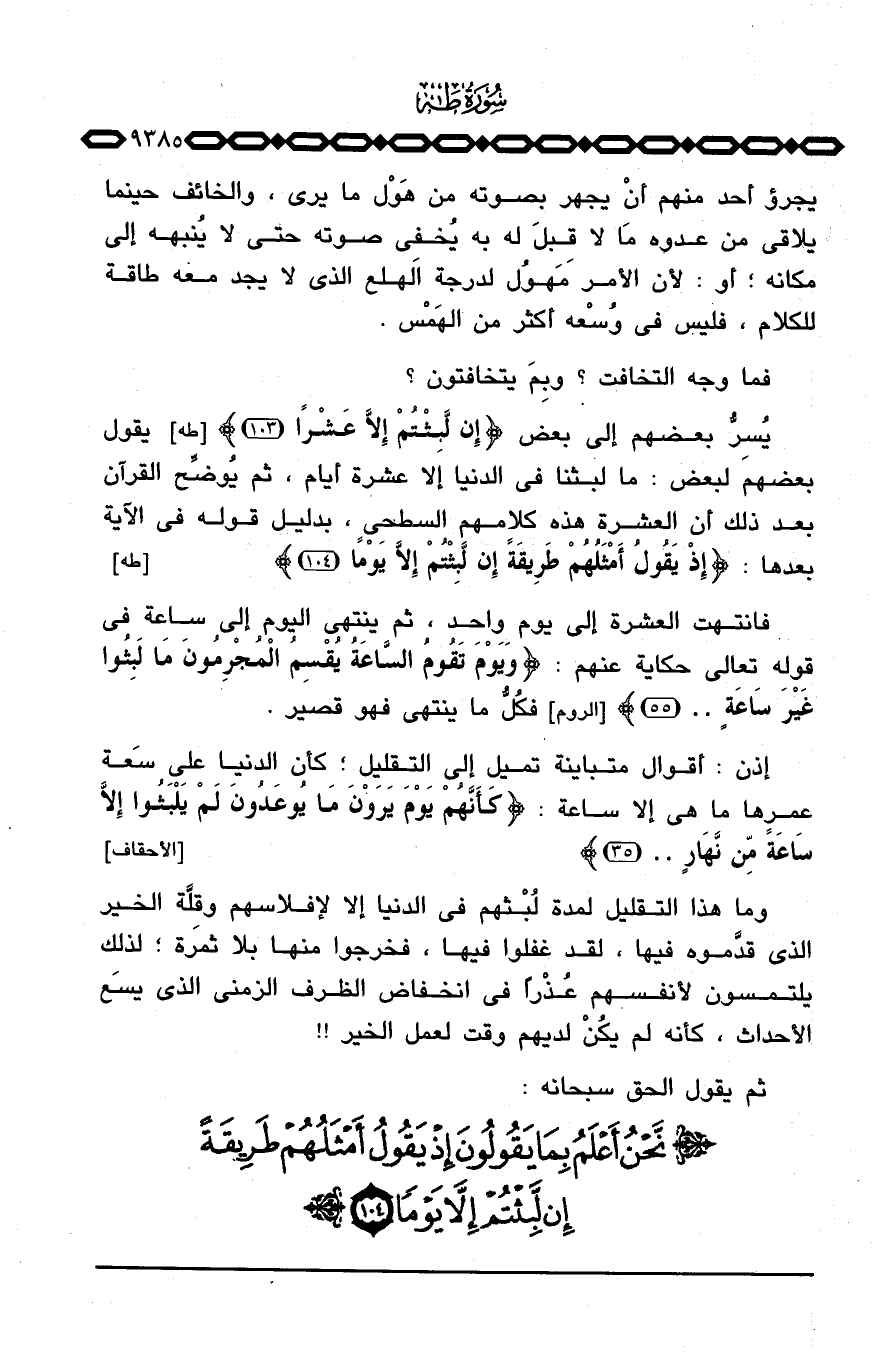 سُورَةُ طٰهٰ
٩٣٨٥
يجرؤ أحد منهم أنْ يجهر بصوته من هَوْل ما يرى ، والخائف حينما
يلاقى من عدوه مَا لا قبلَ له به يُخفى صوته حتى لا يُنبهه إلى
مكانه ؛ أو : لأن الأمر مَهُول لدرجة الهلع الذى لا يجد معه طاقة
للكلام ، فليس فى وُسْعه أكثر من الهَمْس .
فما وجه التخافت ؟ وبِمَ يتخافتون ؟
يُسرُّ بعضهم إلى بعض ﴿إِن لَّبِثْتُمْ إِلاَّ عَشْرًا (١٠٣)﴾ [طه] يقول
بعضهم لبعض : ما لبثنا فى الدنيا إلا عشرة أيام ، ثم يُوضِّح القرآن
بعد ذلك أن العشرة هذه كلامهم السطحى ، بدليل قوله فى الآية
بعدها : ﴿إِذْ يَقُولُ أَمْثَلُهُمْ طَرِيقَةً إِن لَّبِثْتُمْ إِلاَّ يَوْمًا (١٠٤)﴾ [طه]
فانتهت العشرة إلى يوم واحد ، ثم ينتهى اليوم إلى ساعة فى
قوله تعالى حكاية عنهم : ﴿وَيَوْمَ تَقُومُ السَّاعَةُ يُقْسِمُ الْمُجْرِمُونَ مَا لَبِثُوا
غَيْرَ سَاعَةٍ .. (٥٥)﴾ [الروم] فكُلُّ ما ينتهى فهو قصير .
إذن : أقوال متباينة تميل إلى التقليل ؛ كأن الدنيا على سَعة
عمرها ما هى إلا ساعة : ﴿كَأَنَّهُمْ يَوْمَ يَرَوْنَ مَا يُوعَدُونَ لَمْ يَلْبَثُوا إِلاَّ
سَاعَةً مِّن نَّهَارٍ .. (٣٥)﴾ [الأحقاف]
وما هذا التقليل لمدة لُبْثهم فى الدنيا إلا لإفلاسهم وقلَّة الخير
الذى قدَّموه فيها ، لقد غفلوا فيها ، فخرجوا منها بلا ثمرة ؛ لذلك
يلتمسون لأنفسهم عُذْراً فى انخفاض الظرف الزمنى الذى يسَع
الأحداث ، كأنه لم يكُنْ لديهم وقت لعمل الخير !!
ثم يقول الحق سبحانه :
نَّحْنُ أَعْلَمُ بِمَا يَقُولُونَ إِذْ يَقُولُ أَمْثَلُهُمْ طَرِيقَةً
إِن لَّبِثْتُمْ إِلَّا يَوْمًا ١٠٤